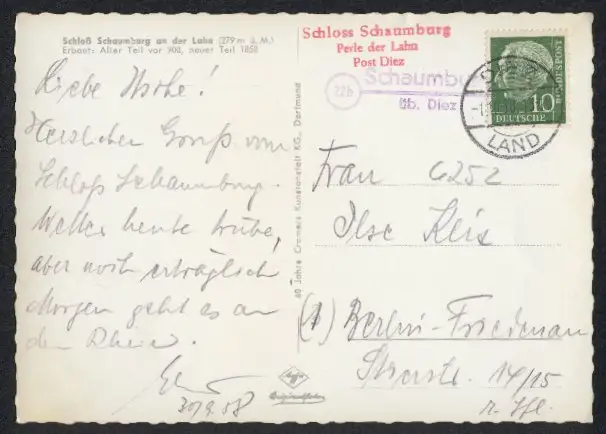 Schloß Schaumburg an der Lahn (279 m ü. M.)
Erbaut: Alter Teil vor 900, neuer Teil 1850
Liebe
Herzlichen Gruß von
Schloß Schaumburg.
Wetter heute trübe,
aber noch erträglich
Morgen geht es an
den Rhein.
30/9.58
60 Jahre Cramers Kunstanstalt KG., Dortmund
Agfa
Schloss Schaumburg
Perle der Lahn
Post Diez
22b
Schaumb
üb. Diez
LAND
10
DEUTSCHE
BUNDESPOST
Frau 6252
Ilse Kleis
(1) Berlin-Friedenau
14/15